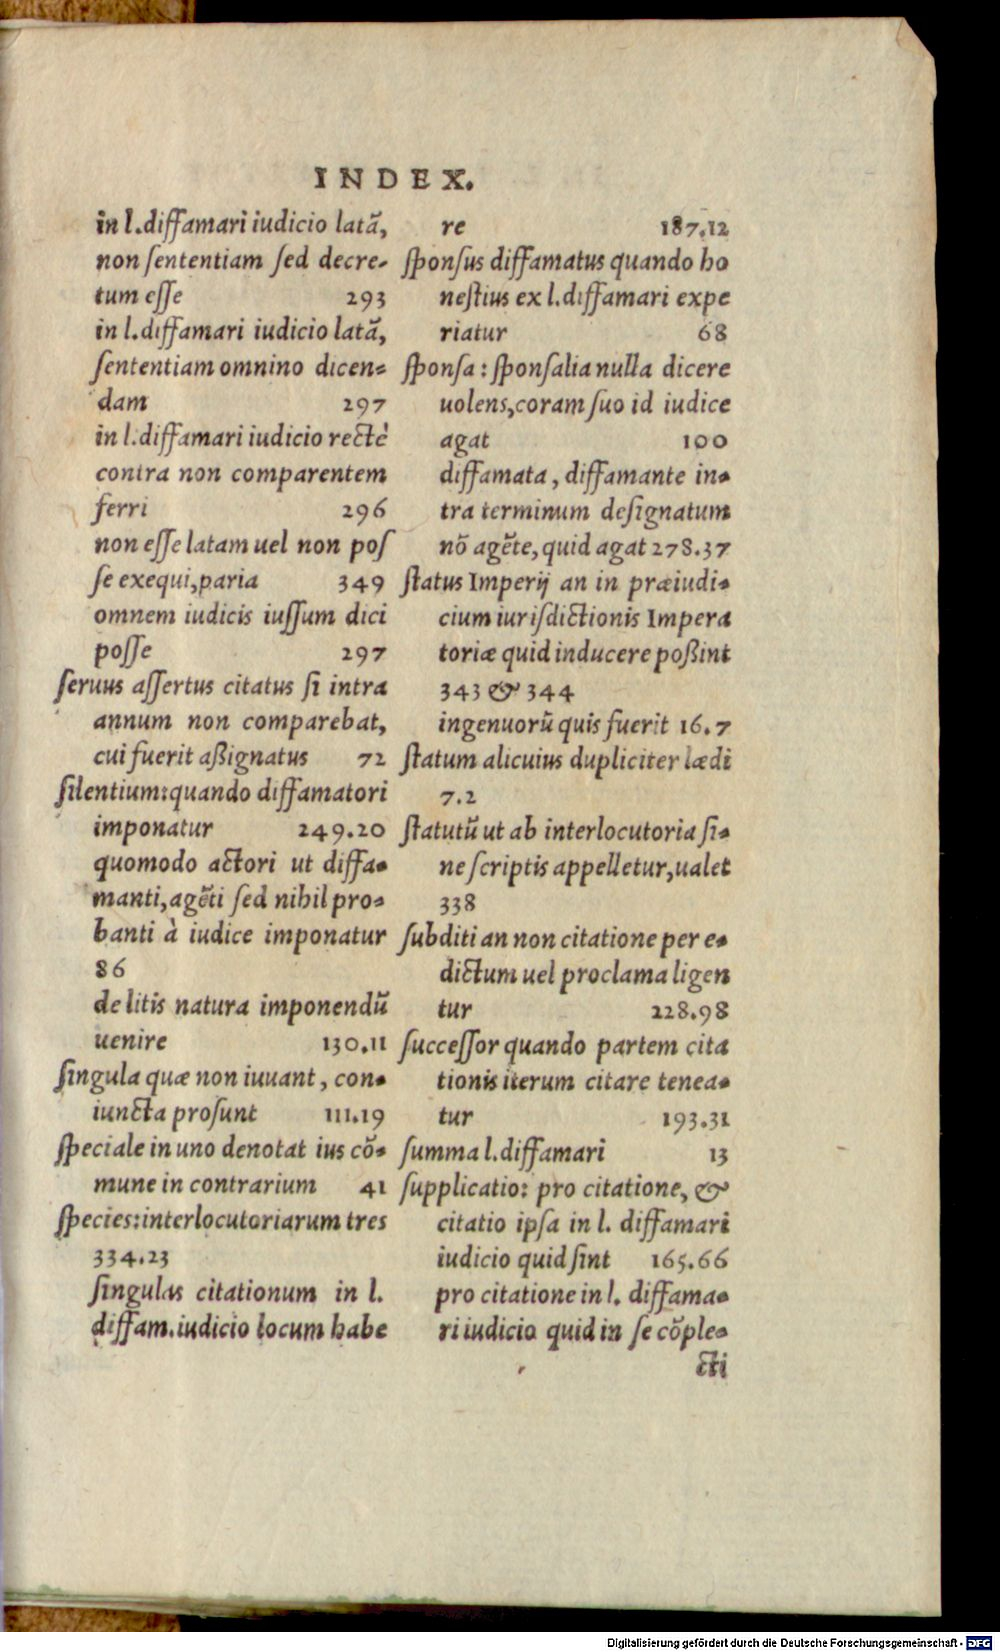 INDEX.
in l.diffamari iudicio latã,
non sententiam sed decre-
tum esse 293
in l.diffamari iudicio latã,
sententiam omnino dicen-
dam 297
in l.diffamari iudicio rectè
contra non comparentem
ferri 296
non esse latam uel non pos
se exequi,paria 349
omnem iudicis iussum dici
posse 297
seruus assertus citatus si intra
annum non comparebat,
cui fuerit aßignatus 72
silentium:quando diffamatori
imponatur 249.20
quomodo actori ut diffa-
manti,agẽti sed nihil pro-
banti à iudice imponatur
86
de litis natura imponendũ
uenire 130.11
singula quæ non iuuant, con-
iuncta prosunt 111.19
speciale in uno denotat ius cõ-
mune in contrarium 41
species:interlocutoriarum tres
334.23
singulas citationum in l.
diffam.iudicio locum habe
re 187.12
sponsus diffamatus quando ho
nestius ex l.diffamari expe
riatur 68
sponsa: sponsalia nulla dicere
uolens,coram suo id iudice
agat 100
diffamata, diffamante in-
tra terminum designatum
nõ agẽte,quid agat 278.37
status Imperij an in præiudi-
cium iurisdictionis Impera
toriæ quid inducere poßint
343 & 344
ingenuorũ quis fuerit 16.7
statum alicuius dupliciter lædi
7.2
statutũ ut ab interlocutoria si-
ne scriptis appelletur,ualet
338
subditi an non citatione per e-
dictum uel proclama ligen
tur 228.98
successor quando partem cita
tionis iterum citare tenea-
tur 193.31
summa l.diffamari 13
supplicatio: pro citatione, &
citatio ipsa in l. diffamari
iudicio quid sint 165.66
pro citatione in l. diffama-
ri iudicio quid in se cõple-
cti
Digitalisierung gefördert durch die Deutsche Forschungsgemeinschaft - DFG